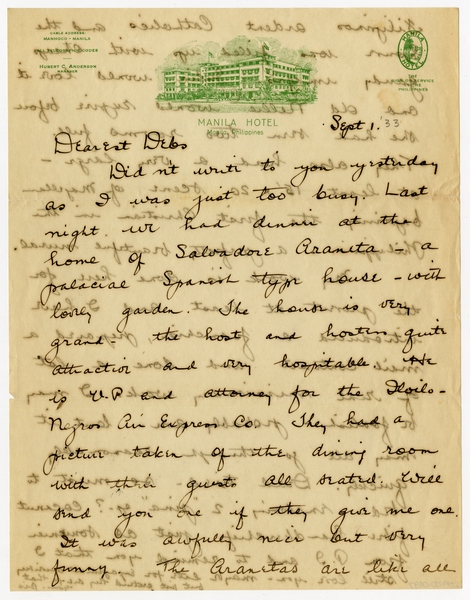 CABLE ADDRESS
MANHOCO - MANILA
HUBERT C. ANDERSON
MANAGER
MANILA
HOTEL
THE
SERVICE
MANILA HOTEL
Manila, Philippines
Sept 1. '33
Dearest Debs
Did n't write to you yesterday
as I was just too busy. Last
night we had dinner at the
home of Salvadore Araneta - a
palacial Spanish type house - with
lovely garden. The house is very
grand - the host and hostess quite
attractive and very hospitable. He
is V.P and attorney for the Iloilo-
Negros Air Express Co. They had a
picture taken of the dining room
with their guests all seated. Will
send you one if they give me one.
It was awfully nice but very
funny. The Aranetas are like all